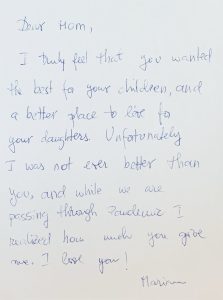 Dear Mom,
I truly feel that you wanted
the best for your children, and
a better place to live for
your daughters. Unfortunately
I was not ever better than
you, and while we are
passing through Pandemic I
realized how much you gave
me. I love you!